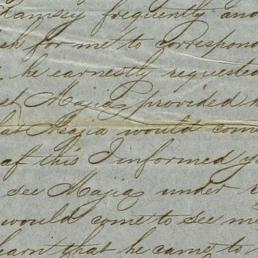 Ramsey frequently and
ask for me to correspond
, he earnestly requested
Majia, provided
that Magia would come
of this I informed y
see Majia, under
would come to see me
learn that he came to